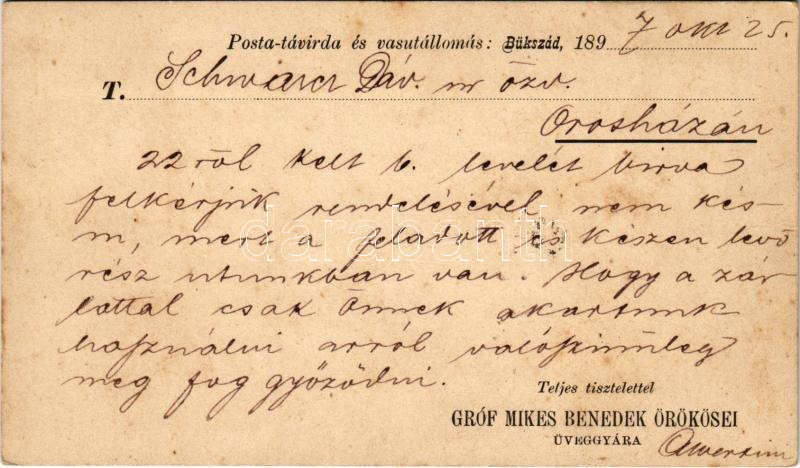 Posta-távirda és vasutállomás: Bükszád, 1897 okt 25.
T. Schwarcz Dáv. úr özv.
Orosházán
22 ről kelt b. levelét bírva
felkérjük rendelésével nem kés-
ni, mert a feladott és készen levő
rész utunkban van. Hogy a zár-
lattal csak Önnek akartunk
használni arról valószinűleg
meg fog győződni.
Teljes tisztelettel
GRÓF MIKES BENEDEK ÖRÖKÖSEI
ÜVEGGYÁRA
darabanth